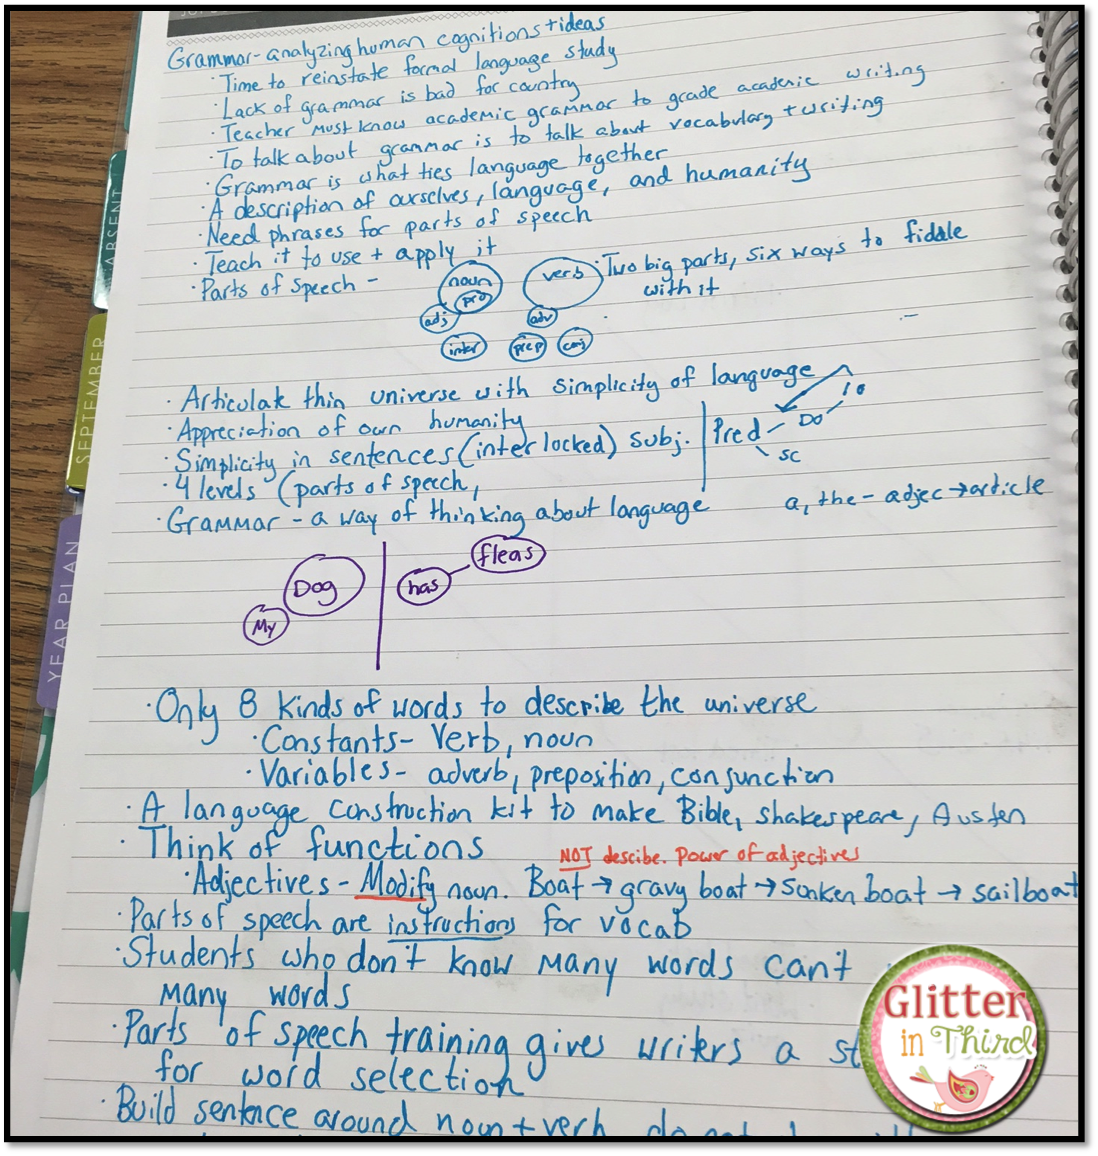 Grammar-analyzing human cognitions + ideas
· Time to reinstate formal language study
· Lack of grammar is bad for country
· Teacher must know academic grammar to grade academic writing
· To talk about grammar is to talk about vocabulary + writing
· Grammar is what ties language together
· A description of ourselves, language, and humanity
· Need phrases for parts of speech
· Teach it to use + apply it
· Parts of Speech -
noun
pro
adj
verb
adv
inter
prep
conj
· Two big parts, six ways to fiddle
with it
· Articulak thin universe with simplicity of language
· Appreciation of own humanity
· Simplicity in sentences (interlocked) subj. | Pred
DO
IO
SC
· 4 levels (parts of speech,
· Grammar - a way of thinking about language
a, the - adjec → article
Dog
My
has
fleas
· Only 8 kinds of words to describe the universe
· Constants - Verb, noun
· Variables - adverb, preposition, conjunction
· A language construction kit to make Bible, Shakespeare, Austen
· Think of functions
NOT descibe. Power of adjectives
· Adjectives - Modify noun. Boat → gravy boat → sunken boat → sailboat
· Parts of speech are instructions for vocab
· Students who don't know many words can't
many words
· Parts of speech training gives writers a st
for word selection
· Build sentence around noun + verb
ABSENT
SEPTEMBER
YEAR PLAN
Glitter
in Third